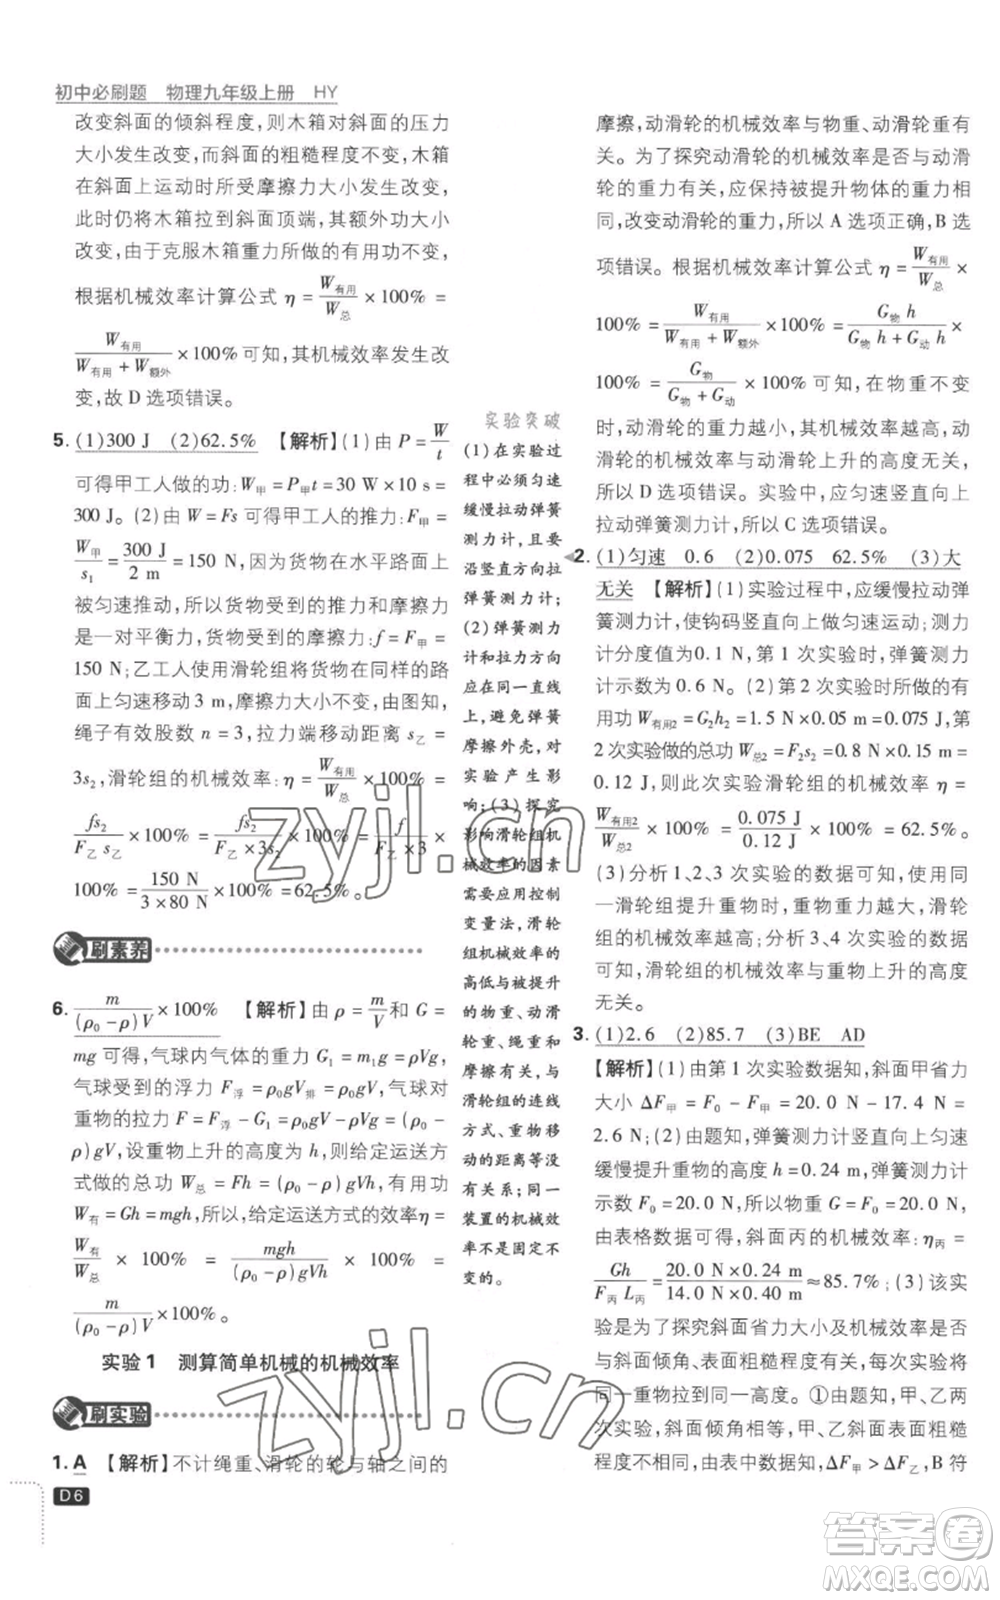 初中必刷题　物理九年级上册　HY
改变斜面的倾斜程度,则木箱对斜面的压力
大小发生改变,而斜面的粗糙程度不变,木箱
在斜面上运动时所受摩擦力大小发生改变,
此时仍将木箱拉到斜面顶端,其额外功大小
改变,由于克服木箱重力所做的有用功不变,
根据机械效率计算公式 η = W有用/W总 × 100% =
W有用/(W有用 + W额外) × 100% 可知,其机械效率发生改
变,故 D 选项错误。
5. (1)300 J　(2)62.5%　【解析】(1)由 P = W/t
可得甲工人做的功:W甲 = P甲t = 30 W × 10 s =
300 J。(2)由 W = Fs 可得甲工人的推力:F甲 =
W甲/s1 = 300 J/2 m = 150 N,因为货物在水平路面上
被匀速推动,所以货物受到的推力和摩擦力
是一对平衡力,货物受到的摩擦力:f = F甲 =
150 N;乙工人使用滑轮组将货物在同样的路
面上匀速移动 3 m,摩擦力大小不变,由图知,
绳子有效股数 n = 3,拉力端移动距离 s乙 =
3s2,滑轮组的机械效率:η = W有用/W总 × 100% =
fs2/(F乙 s乙) × 100% = fs2/(F乙 × 3s2) × 100% = f/(F乙 × 3) ×
100% = 150 N/(3 × 80 N) × 100% = 62.5%。
刷素养
6. m/((ρ0 − ρ)V) × 100%　【解析】由 ρ = m/V 和 G =
mg 可得,气球内气体的重力 G1 = m1g = ρVg,
气球受到的浮力 F浮 = ρ0gV排 = ρ0gV,气球对
重物的拉力 F = F浮 − G1 = ρ0gV − ρVg = (ρ0 −
ρ)gV,设重物上升的高度为 h,则给定运送方
式做的总功 W总 = Fh = (ρ0 − ρ)gVh,有用功
W有 = Gh = mgh,所以,给定运送方式的效率η =
W有/W总 × 100% = mgh/((ρ0 − ρ)gVh) × 100% =
m/((ρ0 − ρ)V) × 100%。
实验 1　测算简单机械的机械效率
刷实验
1. A　【解析】不计绳重、滑轮的轮与轴之间的
D6
实验突破
(1)在实验过
程中必须匀速
缓慢拉动弹簧
测力计,且要
沿竖直方向拉
弹簧测力计;
(2)弹簧测力
计和拉力方向
应在同一直线
上,避免弹簧
摩擦外壳,对
实验产生影
响;(3)探究
影响滑轮组机
械效率的因素
需要应用控制
变量法,滑轮
组机械效率的
高低与被提升
的物重、动滑
轮重、绳重和
摩擦有关,与
滑轮组的连线
方式、重物移
动的距离等没
有关系;同一
装置的机械效
率不是固定不
变的。
摩擦,动滑轮的机械效率与物重、动滑轮重有
关。为了探究动滑轮的机械效率是否与动滑
轮的重力有关,应保持被提升物体的重力相
同,改变动滑轮的重力,所以 A 选项正确,B 选
项错误。根据机械效率计算公式 η = W有用/W总 ×
100% = W有用/(W有用 + W额外) × 100% = G物 h/(G物 h + G动 h) ×
100% = G物/(G物 + G动) × 100% 可知,在物重不变
时,动滑轮的重力越小,其机械效率越高,动
滑轮的机械效率与动滑轮上升的高度无关,
所以 D 选项错误。实验中,应匀速竖直向上
拉动弹簧测力计,所以 C 选项错误。
2. (1)匀速　0.6　(2)0.075　62.5%　(3)大
无关　【解析】(1)实验过程中,应缓慢拉动弹
簧测力计,使钩码竖直向上做匀速运动;测力
计分度值为0.1 N,第 1 次实验时,弹簧测力
计示数为 0.6 N。(2)第 2 次实验时所做的有
用功 W有用2 = G2h2 = 1.5 N × 0.05 m = 0.075 J,第
2 次实验做的总功 W总2 = F2s2 = 0.8 N × 0.15 m =
0.12 J,则此次实验滑轮组的机械效率 η =
W有用2/W总2 × 100% = 0.075 J/0.12 J × 100% = 62.5%。
(3)分析 1、2、3 次实验的数据可知,使用同
一滑轮组提升重物时,重物重力越大,滑轮
组的机械效率越高;分析 3、4 次实验的数据
可知,滑轮组的机械效率与重物上升的高度
无关。
3. (1)2.6　(2)85.7　(3)BE　AD
【解析】(1)由第 1 次实验数据知,斜面甲省力
大小 ΔF甲 = F0 − F甲 = 20.0 N − 17.4 N =
2.6 N;(2)由题知,弹簧测力计竖直向上匀速
缓慢提升重物的高度 h = 0.24 m,弹簧测力计
示数 F0 = 20.0 N,所以物重 G = F0 = 20.0 N,
由表格数据可得,斜面丙的机械效率:η丙 =
Gh/(F丙 L丙) = (20.0 N × 0.24 m)/(14.0 N × 0.40 m) ≈ 85.7%;(3)该实
验是为了探究斜面省力大小及机械效率是否
与斜面倾角、表面粗糙程度有关,实验时都将
同一重物拉到同一高度。①由题知,甲、乙两
次实验,斜面倾角相同,而斜面表面粗糙程度
不同,由表中数据知,ΔF甲 > ΔF乙,B 符
zyjl.cn
zyjl.cn
答案圈
MXQE.COM